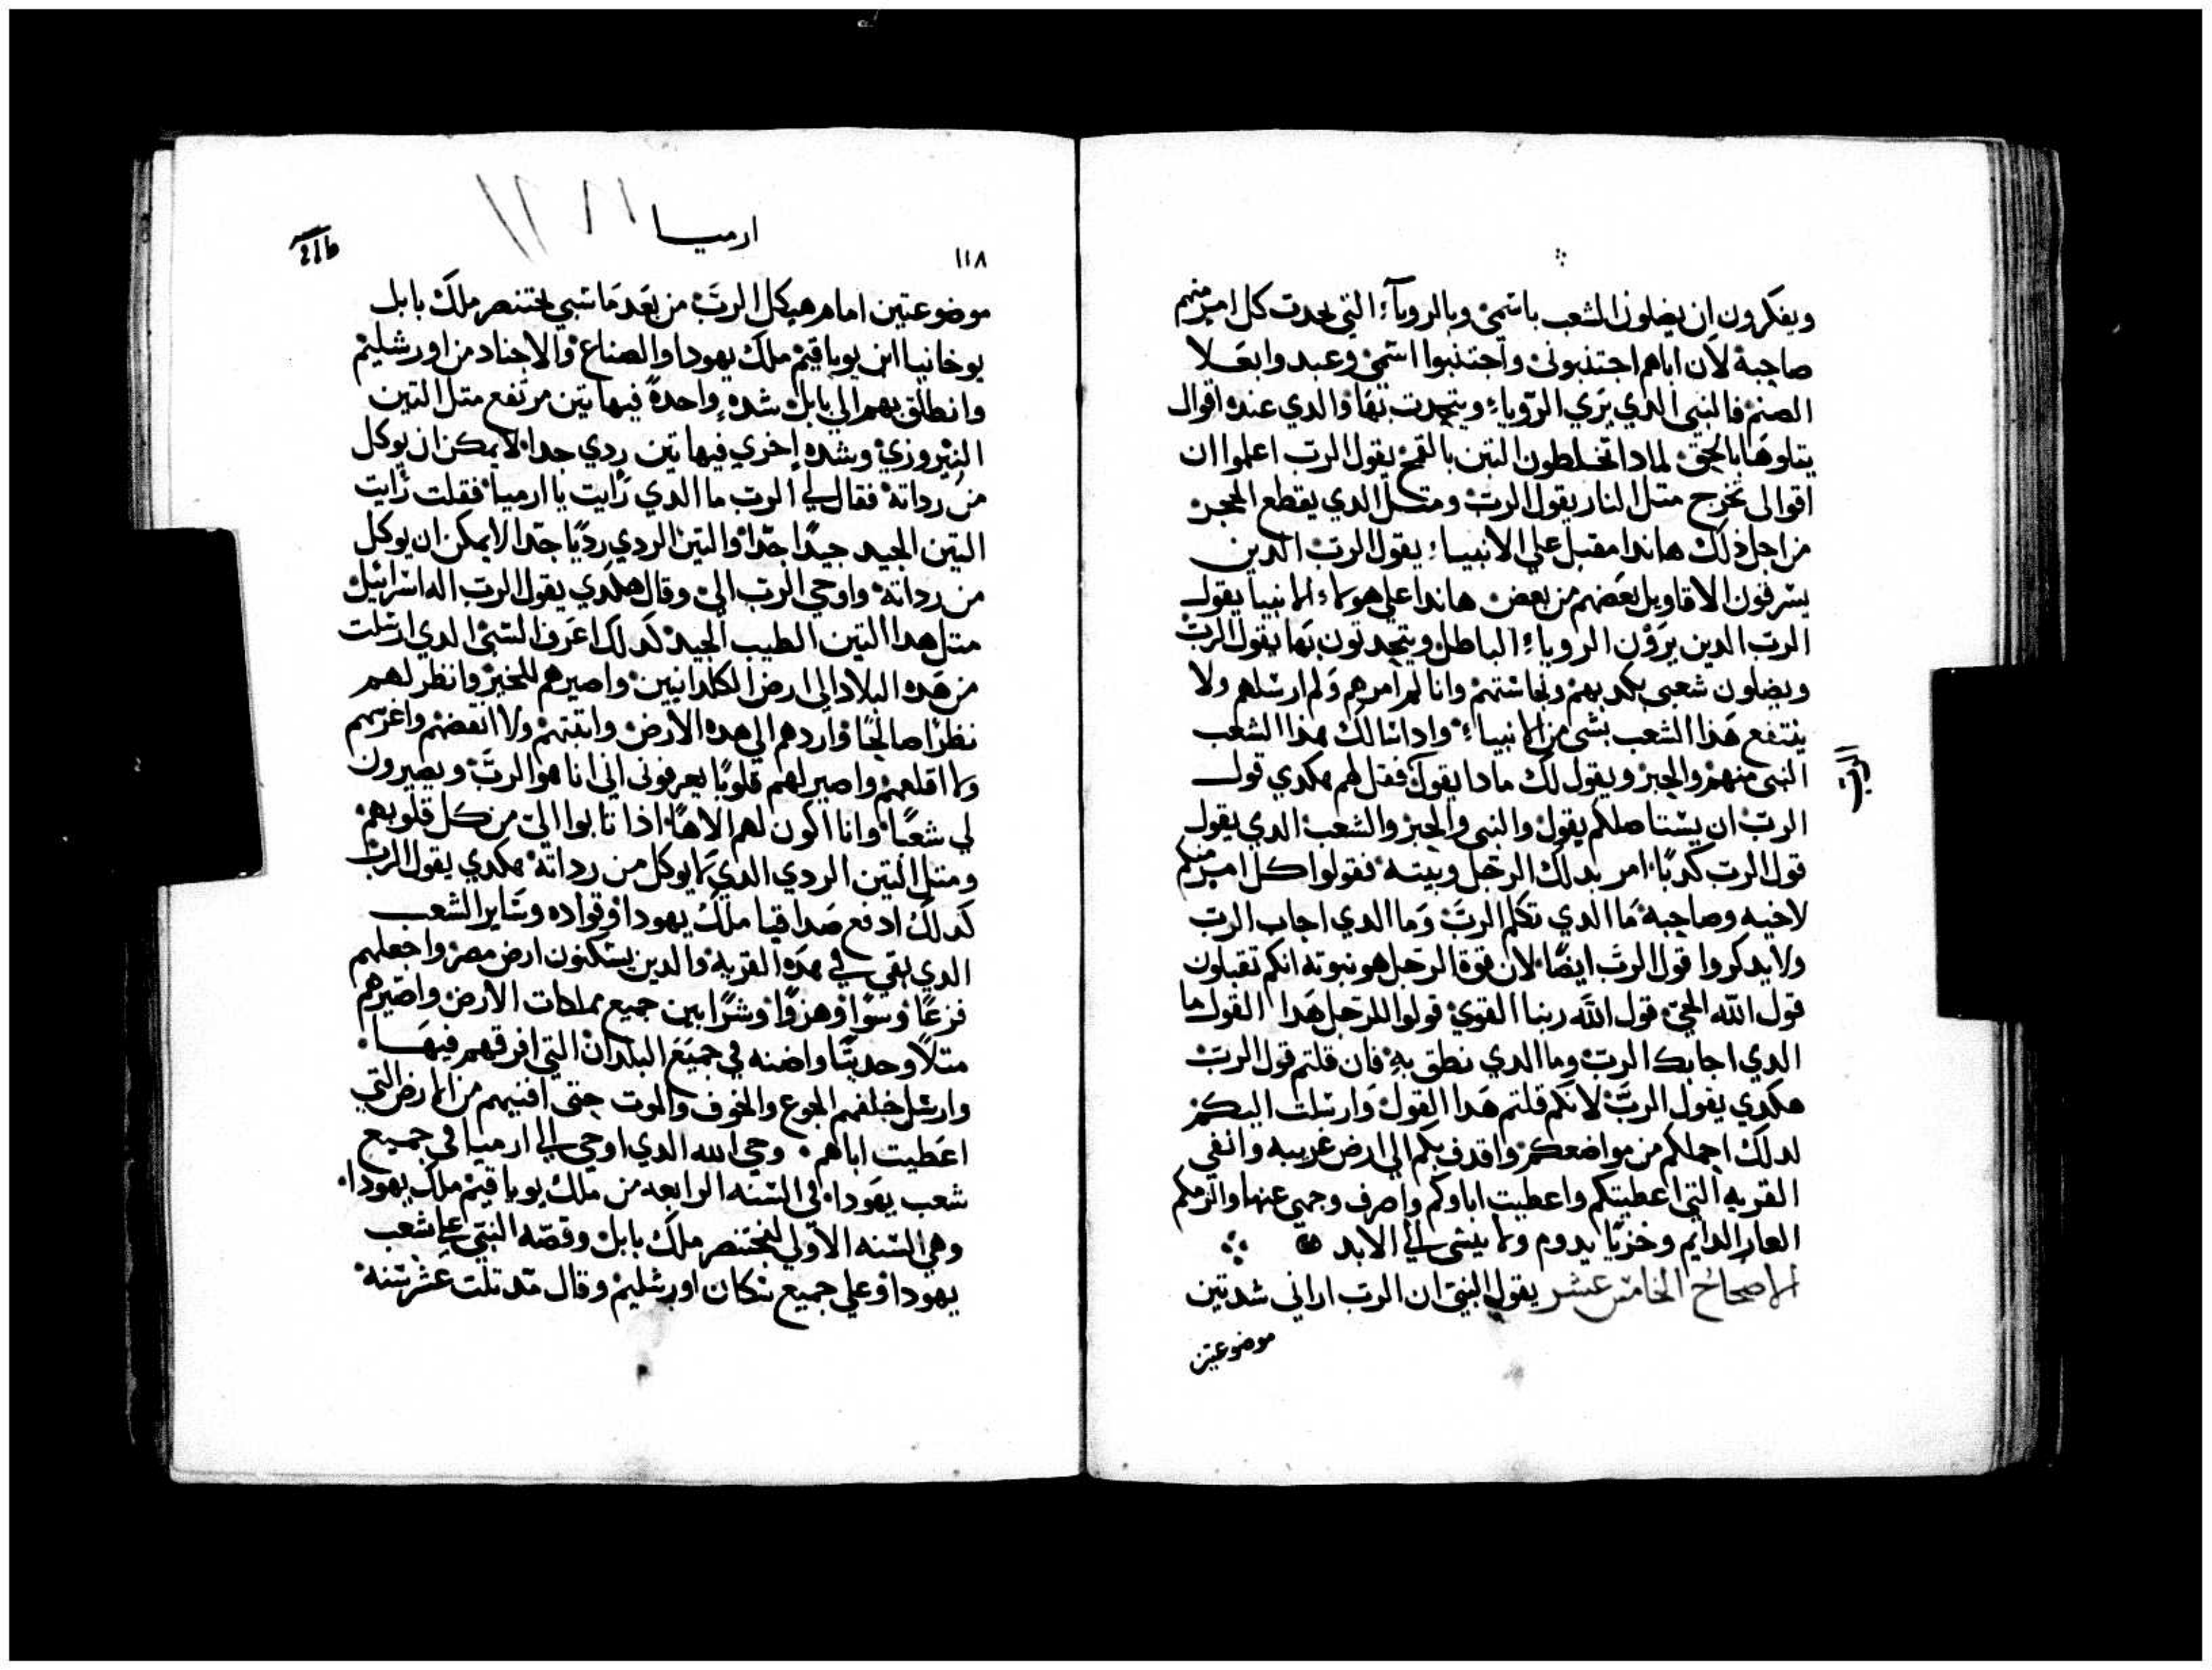 ويفكرون ان يضلون الشعب باسمي وبالروياء التي يحدت كل امر منهم
صاحبه لان اباهم اجتنبوني واجتنبوا اسمي وعبدوا بعلا
الصنم فالنبي الدي يري الروياء ويتحدت بها والدي عنده اقوال
يتلوها بالحق لمادا تخلطون التبن بالقمح يقول الرب اعلموا ان
اقوالي تخرج متل النار يقول الرب ومتل الدي يقطع الحجر
من اجل ذلك هاندا مقبل علي الانبياء يقول الرب الدين
يسرقون الاقاويل بعضهم من بعض هاندا علي هولاء الانبيا يقول
الرب الدين يرون الروياء الباطل ويتحدتون بها يقول الرب
ويضلون شعبي بكدبهم ونجاستهم وانا لم امرهم ولم ارسلهم ولا
ينتفع هدا الشعب بشي من الانبياء وادا سالك هدا الشعب
النبي منهم والحبر ويقول لك مادا يقول فقل لهم هكدي قول
الرب
الرب ان يستاصلكم يقول والنبي والحبر والشعب الدي يقول
قول الرب كدبا امر بدلك الرجل وبيته فقولوا كل امر منكم
لاخيه وصاحبه ما الدي تكلم الرب وما الدي اجاب الرب
ولا يدكروا قول الرب ايضا لان قوة الرجل هو نبوته انكم تقبلون
قول الله الحي قول الله ربنا القوي قولوا للرجل هدا القول ما
الدي اجابك الرب وما الدي نطق به فان قلتم قول الرب
هكدي يقول الرب لانكم قلتم هدا القول وارسلت اليكم
لدلك احملكم من مواضعكم واقدف بكم الي ارض غريبه وانفي
القريه التي اعطيتكم واعطيت اباوكم واصرف وجهي عنها والزمكم
العار الدايم وخزيا يدوم ولا ينسي الي الابد
الاصحاح الخامس عشر يقول النبي ان الرب اراني شدتين
موضوعتين
ارميا
١١٨
موضوعتين امام هيكل الرب من بعد ما سبي بختنصر ملك بابل
يوخانيا ابن يوياقيم ملك يهودا والصناع والاجناد من اورشليم
وانطلق بهم الي بابل شده واحدة فيها تين مرتفع متل التين
النيروزي وشده اخري فيها تين ردي جدا لا يمكن ان يوكل
من رداته فقال لي الرب ما الدي رايت يا ارميا فقلت رايت
التين الجيد جيدا جدا والتين الردي رديا جدا لا يمكن ان يوكل
من رداته واوحي الرب الي وقال هكدي يقول الرب اله اسراييل
متل هدا التين الطيب الجيد كدلك اعرف السبي الدي ارسلت
من هده البلاد الي ارض الكلدانيين واصيرهم للخير وانظر لهم
نظرا صالحا واردهم الي هده الارض واتبتهم ولا انقضهم واغرسهم
ولا اقلعهم واصير لهم قلوبا يعرفوني اني انا هو الرب ويصيرون
لي شعبا وانا اكون لهم الاها اذا تابوا الي من كل قلوبهم
ومتل التين الردي الدي لا يوكل من رداته هكدي يقول الرب
كدلك ادفع صداقيا ملك يهودا وقواده وساير الشعب
الدي بقي في هده القريه والدين يسكنون ارض مصر واجعلهم
فزعا وسوا وهزوا وشرا بين جميع مملكات الارض واصيرهم
متلا وحديتا واضنه في جميع البلدان التي افرقهم فيها
وارسل خلفهم الجوع والخوف والموت حتي افنيهم من الارض التي
اعطيت اباهم وحي الله الدي اوحي الي ارميا في جميع
شعب يهودا في السنه الرابعه من ملك يوياقيم ملك يهودا
وهي السنه الاولي لبختنصر ملك بابل وقصه النبي علي شعب
يهودا وعلي جميع سكان اورشليم وقال مند تلت عشر سنه